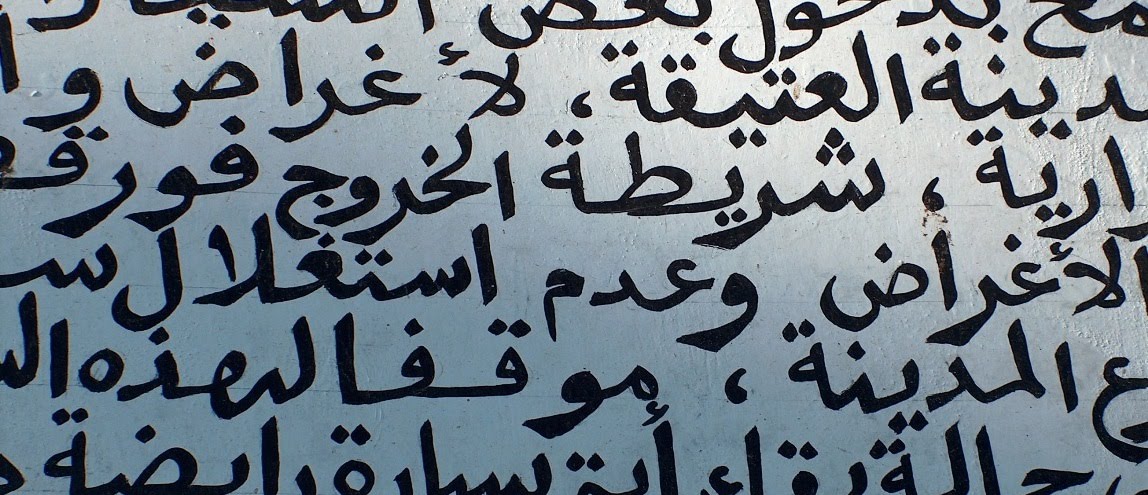 بدخول بعض
المدينة العتيقة، لأغراض و
رارية، شريطة الخروج فور قض
الأغراض وعدم استغلال س
ع المدينة، موقفا لهذه الس
حالة بقاء أية سيارة رابضة